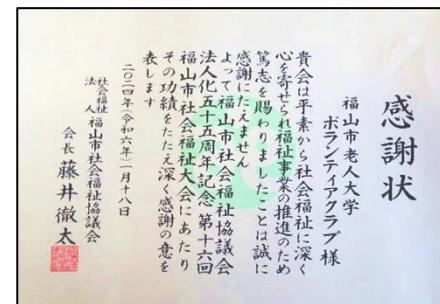 感謝状
福山市老人大学
ボランティアクラブ 様
貴会は平素から社会福祉に深く
心を寄せられ福祉事業の推進のため
篤志を賜わりましたことは誠に
感謝にたえません
よって福山市社会福祉協議会
法人化五十五周年記念 第十六回
福山市社会福祉大会にあたり
その功績をたたえ深く感謝の意を
表します
二〇二四年(令和六年)一月十八日
社会福祉法人 福山市社会福祉協議会
会長 藤井徹太